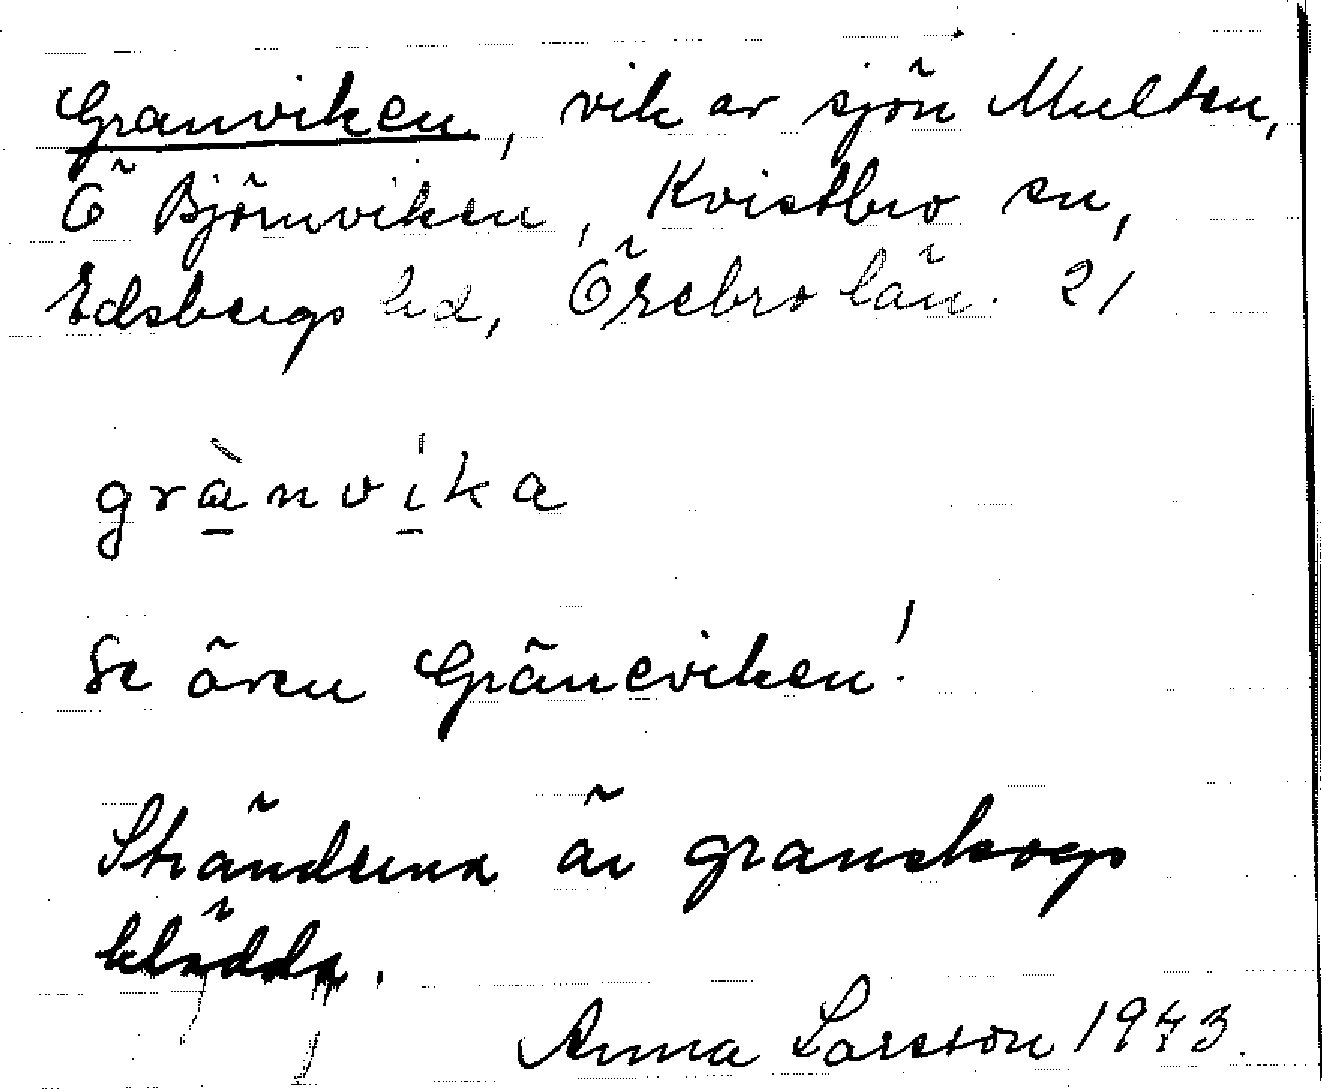 Granviken, vik av sjön Multen,
Ö Björnviken, Kvistbro sn,
Edsbergs hd, Örebro län. 21
grànvíka
Se även Gräneviken!
Stränderna är granskogs
klädda.
Anna Larsson 1943.